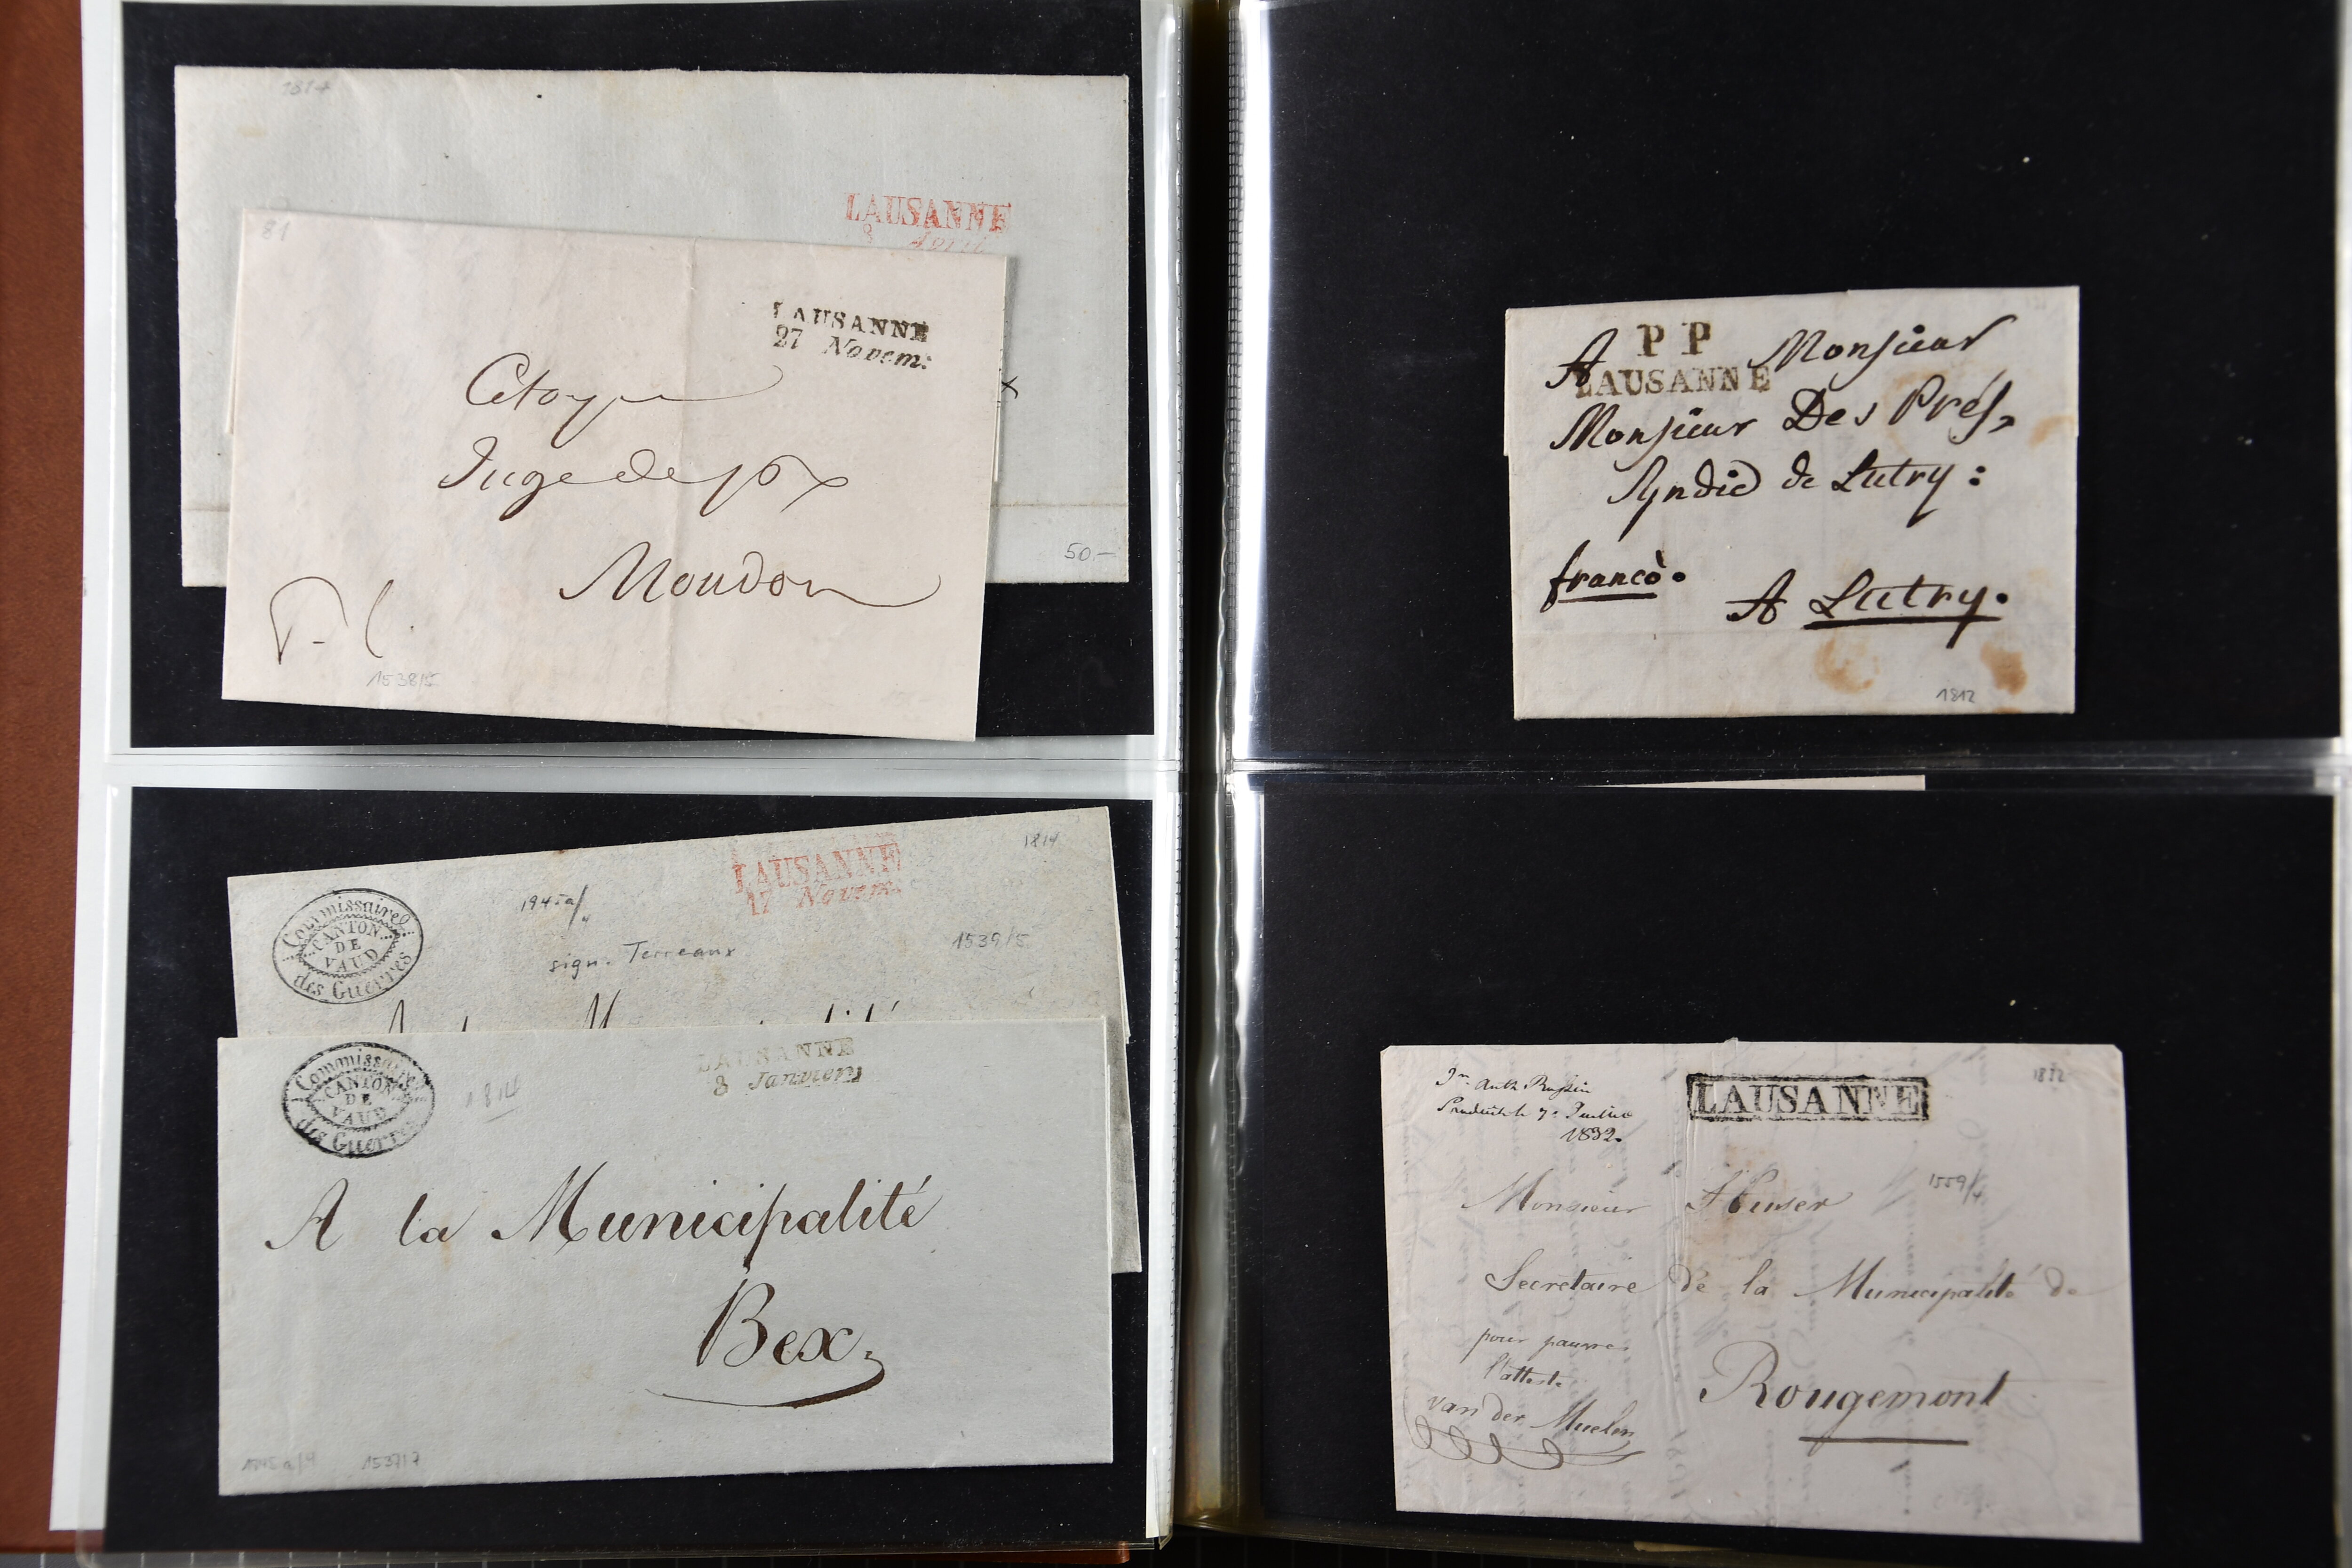 1817
LAUSANNE
8 Avril
81
LAUSANNE
27 Novem:
Citoyen
Juge de paix
Moudon
50.–
1538/5
1814
LAUSANNE
17 Novem:
Commissaire
CANTON
DE
VAUD
des Guerres
1945a/
sign. Terreaux
1539/5
LAUSANNE
8 Janvier
Commissaire
CANTON
DE
VAUD
des Guerres
1814
A la Municipalité
Bex
1537/7
P P
LAUSANNE
A Monsieur
Monsieur Des Prés,
Syndic de Lutry:
franco.
A Lutry.
1812
LAUSANNE
1832
1832.
1559/
Monsieur
Secretaire de la Municipalité de
pour pauvre
l'atteste
van der Muelen
Rougemont